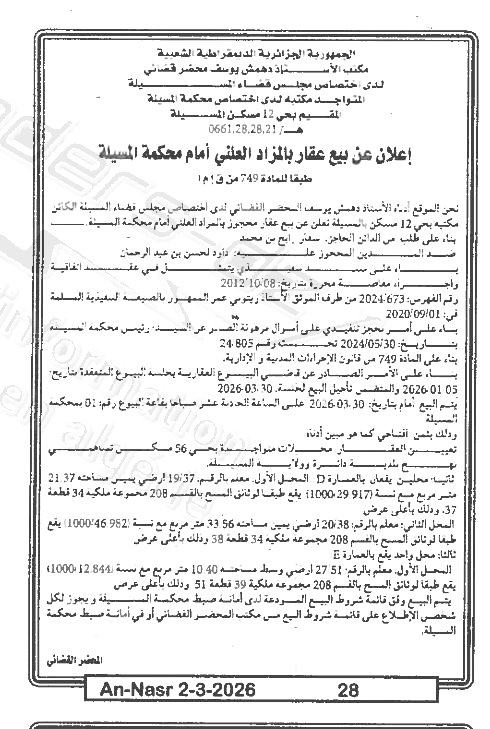 الجمهورية الجزائرية الديمقراطية الشعبية
مكتب الأستاذ دهمش يوسف محضر قضائي
لدى اختصاص مجلس قضاء المسيلة
المتواجد مكتبه لدى اختصاص محكمة المسيلة
المقيم بحي 12 مسكن المسيلة
هـ/ 0661,28,28,21
إعلان عن بيع عقار بالمزاد العلني أمام محكمة المسيلة
طبقا للمادة 749 من ق إ م إ
نحن الموقع أدناه الأستاذ دهمش يوسف المحضر القضائي لدى اختصاص مجلس قضاء المسيلة الكائن
مكتبه بحي 12 مسكن بالمسيلة نعلن عن بيع عقار محجوز بالمزاد العلني أمام محكمة المسيلة
بناء على طلب من الدائن الحاجز: سفار رابح بن محمد
ضد المدين المحجوز عليه: داود لحسن بن عبد الرحمان
بناء على سند تنفيذي يتمثل في عقد اتفاقية
وإجراء مقاصة محررة بتاريخ: 2012/10/08
رقم الفهرس: 2024/673 من طرف الموثق الأستاذ زيتوني عمر الممهور بالصيغة التنفيذية المسلمة
في: 2020/09/01
بناء على أمر بحجز تنفيذي على أموال مرهونة الصادر عن السيد: رئيس محكمة المسيلة
بتاريخ: 2024/05/30 تحت رقم 24/805
بناء على المادة 749 من قانون الإجراءات المدنية و الإدارية.
بناء على الأمر الصادر عن قاضي البيوع العقارية بجلسة البيوع المنعقدة بتاريخ:
2026-01-05 والمتضمن تأجيل البيع لجلسة: 2026-03-30
يتم البيع أمام بتاريخ: 30-03-2026 على الساعة الحادية عشر صباحا بقاعة البيوع رقم: 01 بمحكمة
المسيلة
وذلك بثمن افتتاحي كما هو مبين أدناه
تعيين العقار: محلات متواجدة بحي 56 مسكن تساهمي
بلدية دائرة وولاية المسيلة.
ثانيا: محلين يقعان بالعمارة D المحل الأول: معلم بالرقم: 19/37 أرضي يمين مساحته 21.37
متر مربع مع نسبة (1000/29.917) يقع طبقا لوثائق المسح بالقسم 208 مجموعة ملكية 34 قطعة
37، وذلك بأعلى عرض
المحل الثاني: معلم بالرقم: 20/38 أرضي يمين مساحته 33.56 متر مربع مع نسبة (1000/46.982) يقع
طبقا لوثائق المسح بالقسم 208 مجموعة ملكية 34 قطعة 38 وذلك بأعلى عرض
ثالثا: محل واحد يقع بالعمارة E
المحل الأول: معلم بالرقم: 27/51 أرضي وسط مساحته 10.40 متر مربع مع نسبة (1000/12.844)
يقع طبقا لوثائق المسح بالقسم 208 مجموعة ملكية 39 قطعة 51 وذلك بأعلى عرض
يتم البيع وفق قائمة شروط البيع المودعة لدى أمانة ضبط محكمة المسيلة و يجوز لكل
شخص الإطلاع على قائمة شروط البيع من مكتب المحضر القضائي أو في أمانة ضبط محكمة
المسيلة.
المحضر القضائي
An-Nasr 2-3-2026 28